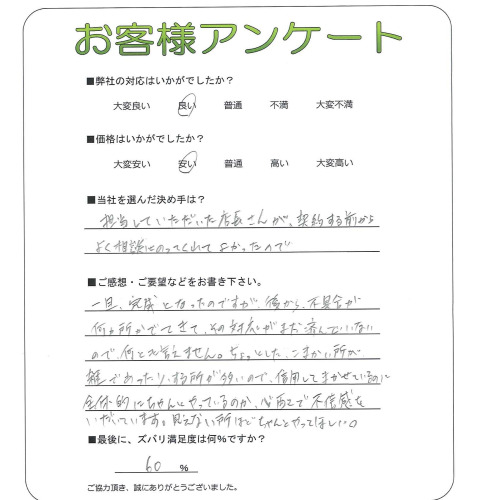 お客様アンケート
■弊社の対応はいかがでしたか？
大変良い 良い 普通 不満 大変不満
■価格はいかがでしたか？
大変安い 安い 普通 高い 大変高い
■当社を選んだ決め手は？
担当していただいた店長さんが、契約する前から
よく相談にのってくれてよかったので
■ご感想・ご要望などをお書き下さい。
一旦、完成となったのですが、後から、不具合が
何か所かでてきて、その対応がまだ済んでいない
ので、何とも言えません。ちょっとした、こまかい所が
雑であったりする所が多いので、信用してまかせているのに
全体的にちゃんとやっているのか、心配で不信感を
いだいています。見えない所ほどちゃんとやってほしい。
■最後に、ズバリ満足度は何%ですか？
60 %
ご協力頂き、誠にありがとうございました。